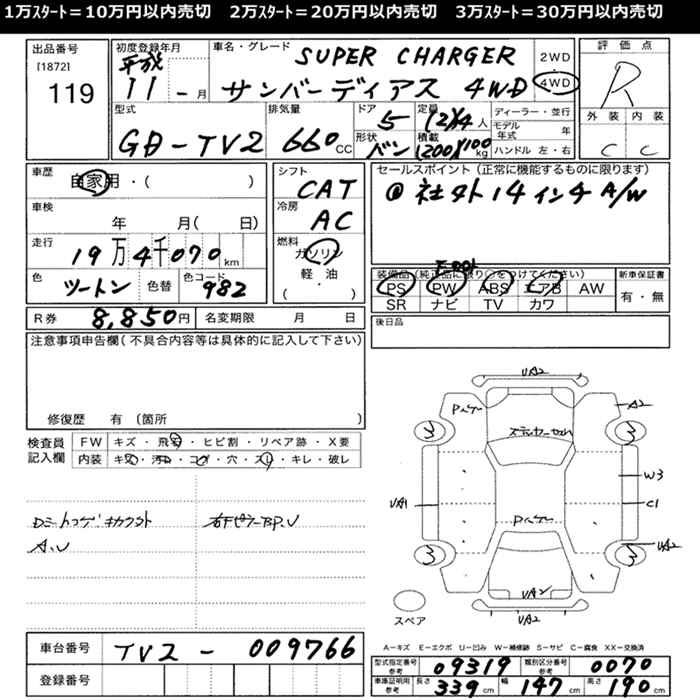 1万ｽﾀｰﾄ＝10万円以内売切　2万ｽﾀｰﾄ＝20万円以内売切　3万ｽﾀｰﾄ＝30万円以内売切
出品番号
[1872]
119
初度登録年月
平成
11 - 月
車名・グレード
SUPER CHARGER
サンバーディアス 4WD
2WD
4WD
評価点
R
外装 内装
C C
型式
GD-TV2
排気量
660 CC
ドア
5
形状
バン
定員
(2)4 人
積載
(200)100 kg
ディーラー・並行
モデル年式 年
ハンドル 左・右
車歴
自家用・( )
車検
年 月( 日)
走行
19万4千070 km
色
ツートン
色替
色コード
982
シフト
CAT
冷房
AC
燃料
ガソリン
軽油
( ・ )
セールスポイント(正常に機能するものに限ります)
@ 社外14インチA/W
装備品(純正品に限り○をつけてください)
PS PW ABS エアB AW
SR ナビ TV カワ
新車保証書
有・無
後日品
R券 8,850円
名変期限 月 日
注意事項申告欄(不具合内容等は具体的に記入して下さい)
修復歴 有 (箇所 )
検査員記入欄
FW キズ・飛石・ヒビ割・リペア跡・X要
内装 キズ・汚れ・コゲ・穴・スレ・キレ・破レ
A.U
車台番号 TV2-009766
登録番号
UA2
A2
3
3
W3
UA1
C1
3
3
UA2
UA2
スペア
A－キズ E－エクボ U－凹み W－補修跡 S－サビ C－腐食 XX－交換済
型式指定番号 参考 09319
類別区分番号 参考 0070
車庫証明用 参考 長さ 339 cm 幅 147 cm 高さ 190 cm